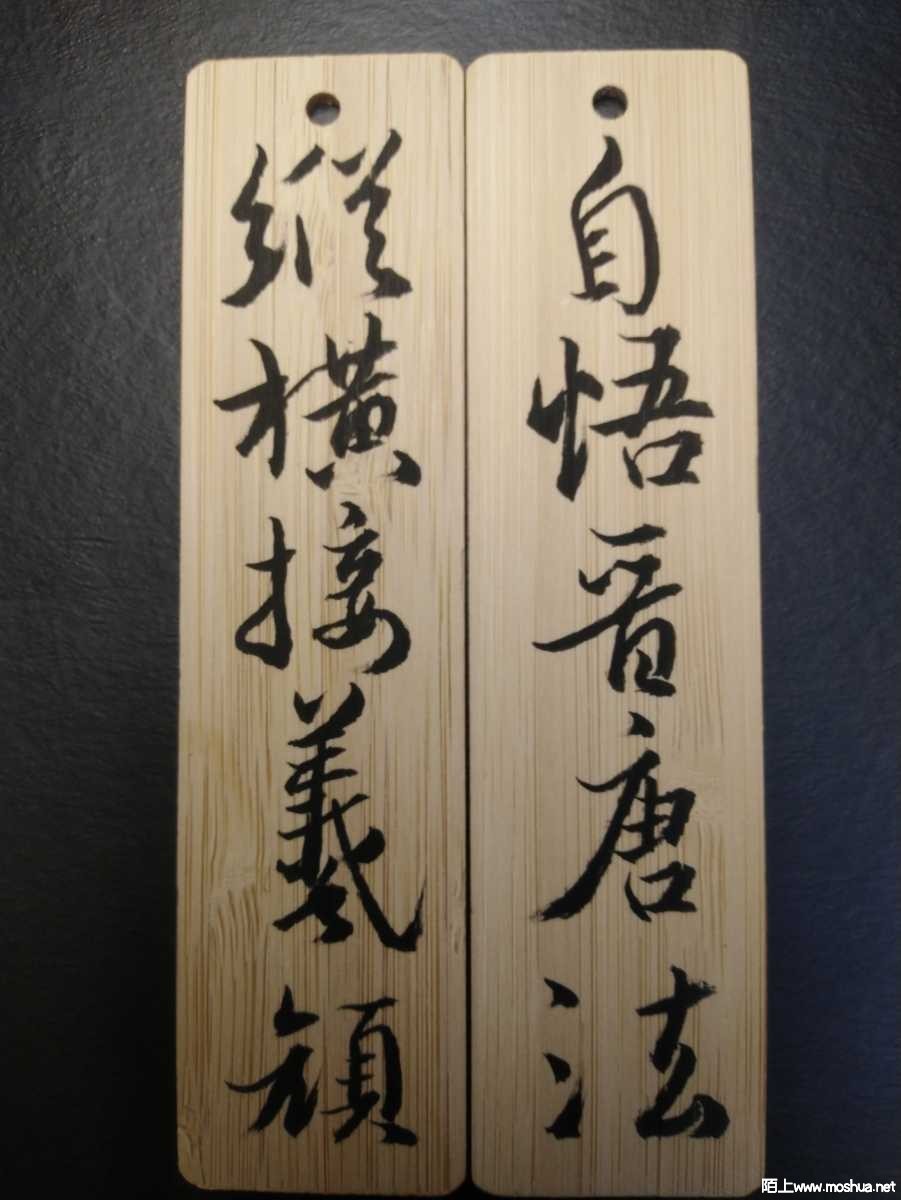 自悟晋唐法
縱橫接羲顏
陌上www.moshua.net